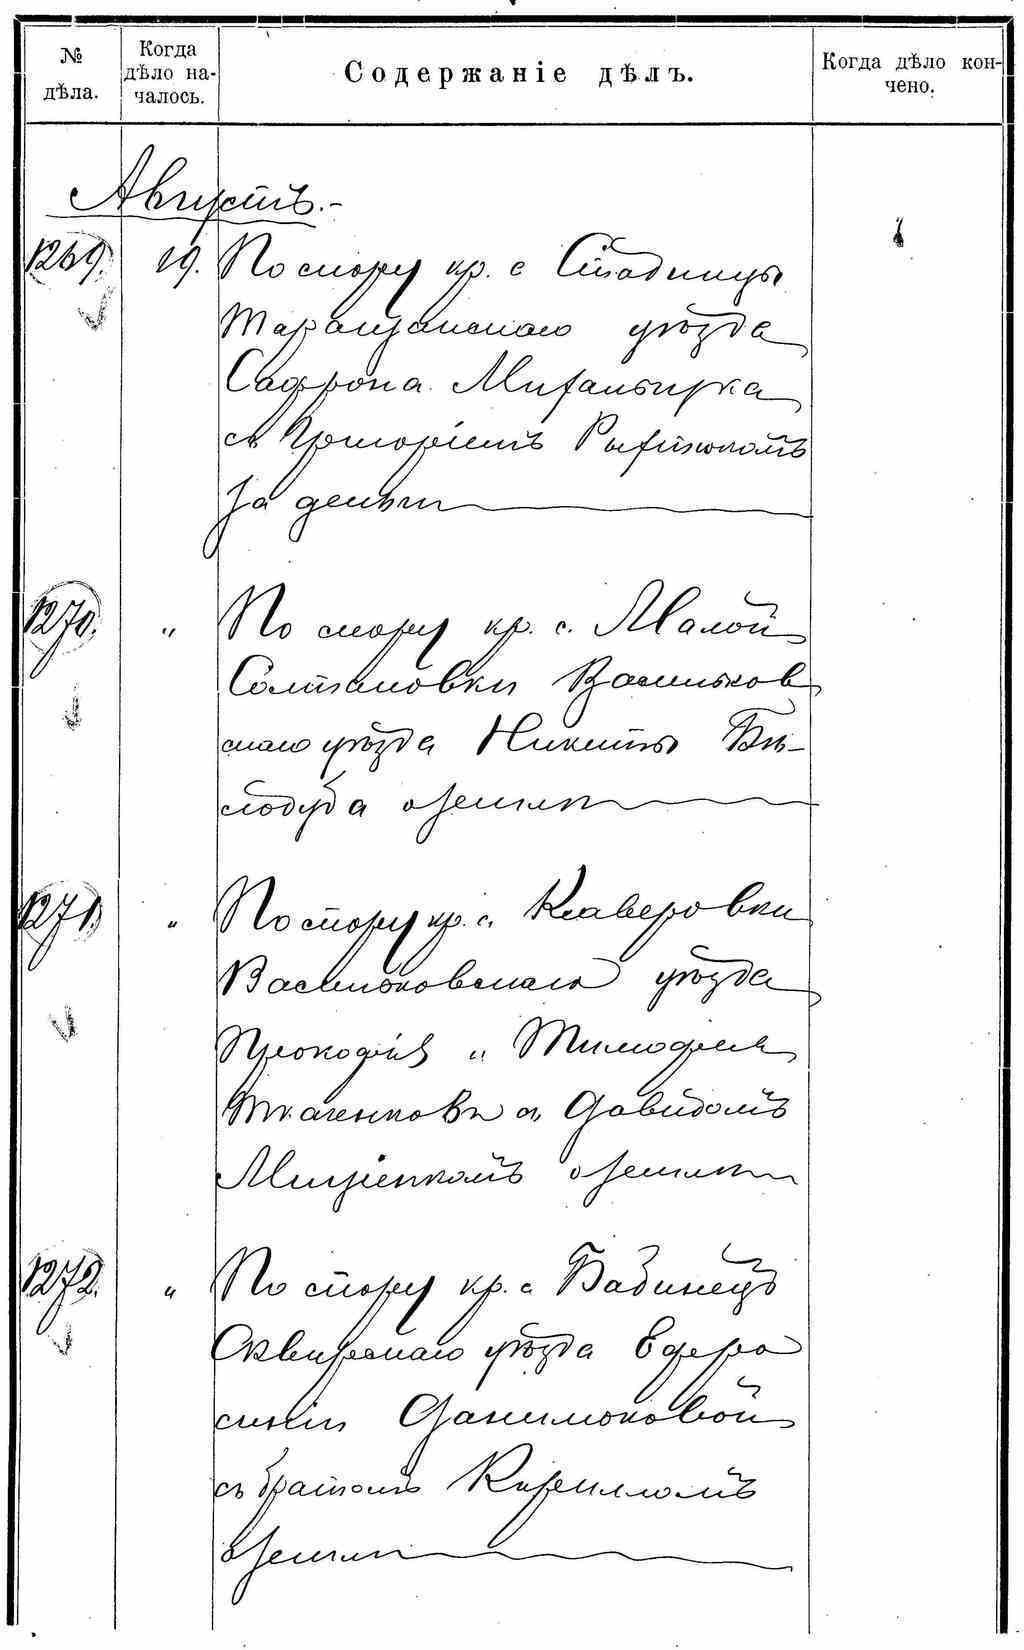 № дѣла.
Когда дѣло на-чалось.
Содержаніе дѣлъ.
Когда дѣло кон-чено.
Августъ.-
1269. 19. По спору кр. с Стадницы
Таращанскаго уѣзда
Сафрона
съ Григоріемъ
за деньги
1270. " По спору кр. с. Малой
Солтановки Васильков
скаго уѣзда Никиты Бѣ-
лодуба о землѣ
1271. " По спору кр. с. Клаверовки
Васильковскаго уѣзда
Прокофія и Тимофея
Ткаченковъ съ Давидомъ
о землѣ
1272. " По спору кр. с Бабинецъ
Сквирскаго уѣзда Ефро
синіи Данилюковой
съ братомъ Кирилломъ
о землѣ